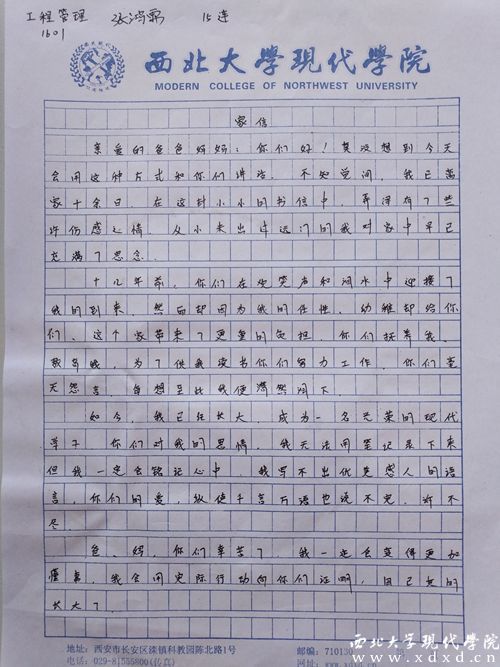 工程管理 张鸿霈 15连
1601
西北大学現代学院
MODERN COLLEGE OF NORTHWEST UNIVERSITY
家信
亲爱的爸爸妈妈：你们好！真没想到今天
会用这种方式和你们讲话。不知觉间，我已离
家十余日，在这封小小的书信中，弄得有了些
许伤感之情，从小未出过远门的我对家中早已
充满了思念。
十几年前，你们在欢笑声和泪水中迎接了
我的到来，然而却因为我的任性、幼稚却给你
们、这个家带来了更重的负担，你们抚养我、
教育我，为了供我读书你们努力工作，你们毫
无怨言，每想至此我便潸然泪下。
如今，我已经长大，成为一名光荣的现代
学子，你们对我的恩情，我无法用笔记录下来
但我一定会铭记心中，我写不出优美感人的语
言，你们的爱，纵使千言万语也说不完，诉不
尽。
爸、妈，你们辛苦了，我一定会变得更加
懂事，我会用实际行动向你们证明，自己真的
长大了。
地址：西安市长安区滦镇科教园陈北路1号
电话：029-81555800(传真)
邮编：71013
西北大学现代学院
www.xdxd.cn